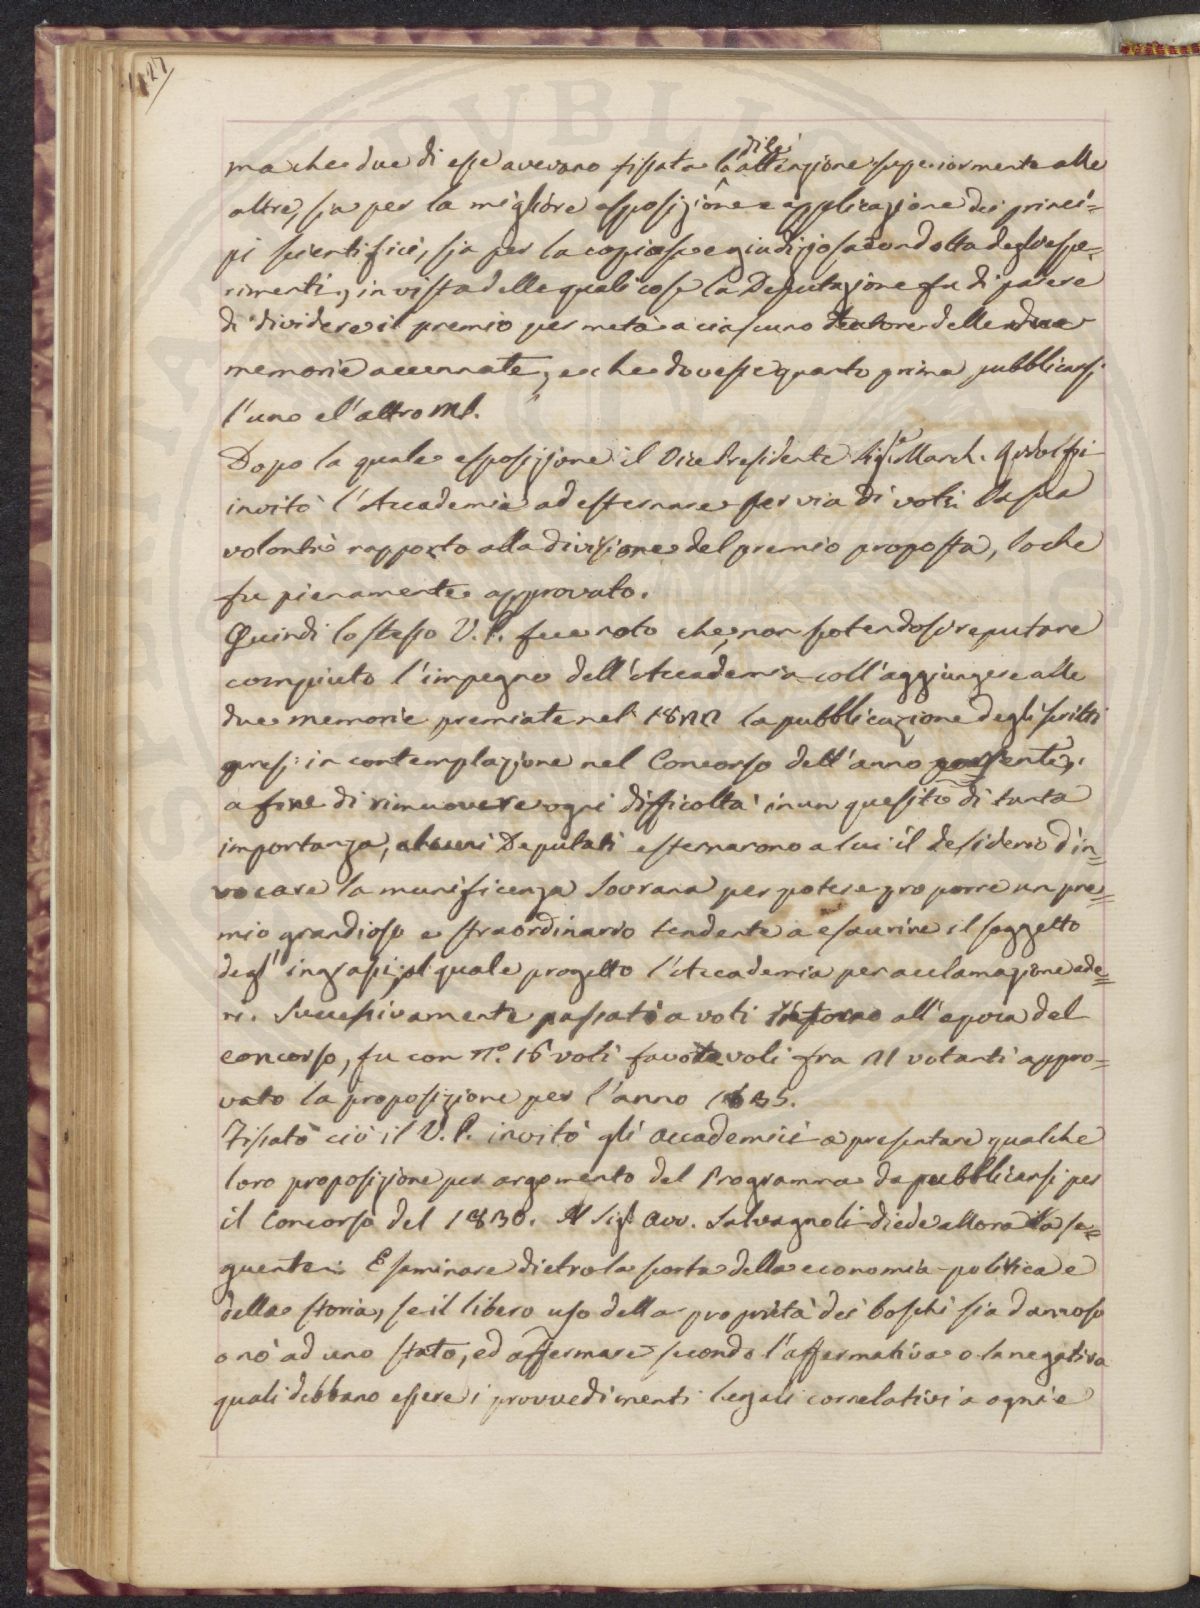 127
di lei
ma che due di esse avevano fissata la attenzione superiormente alle
altre, sia per la migliore esposizione e applicazione dei princi=
pi scientifici, sia per la copiosa e giudiziosa condotta degl'espe=
rimenti, in vista delle quali cose la Deputazione fu di parere
di dividere il premio per metà a ciascuno delle due
memorie accennate, e che dovesse quanto prima pubblicarsi
l'uno e l'altro MS.
Dopo la quale esposizione il Vice Presidente Sigr. March. Ridolfi
invitò l'Accademia ad esternare per via di voti la sua
volontà rapporto alla divisione del premio proposta, lo che
fu pienamente approvato.
Quindi lo stesso V. P. fece noto che, non potendosi reputare
compiuto l'impegno dell'Accademia coll'aggiungere alle
due memorie premiate nel la pubblicazione degli scritti
presi in contemplazione nel Concorso dell'anno presente,
a fine di rimuovere ogni difficoltà in un quesito di tanta
importanza, alcuni Deputati esternarono a lui il desiderio d'in=
vocare la munificenza Sovrana per potere proporre un pre=
mio grandioso e straordinario tendente a esaurire il soggetto
degl'ingrassi, al quale progetto l'Accademia per acclamazione ade=
rì. Successivamente passato a voti intorno all'epoca del
concorso, fu con n.° 16 voti favorevoli fra 21 votanti appro=
vato la proposizione per l'anno 1835.
Fissato ciò il V. P. invitò gli accademici a presentare qualche
loro proposizione per argomento del Programma da pubblicarsi per
il Concorso del 1830. Il Sigr. Avv. Salvagnoli diede allora la se=
guente: Esaminare dietro la scorta della economia politica e
della storia, se il libero uso della proprietà dei boschi sia dannoso
o nò ad uno stato, ed affermare secondo l'affermativa o la negativa
quali debbano essere i provvedimenti legali correlativi a ogni e